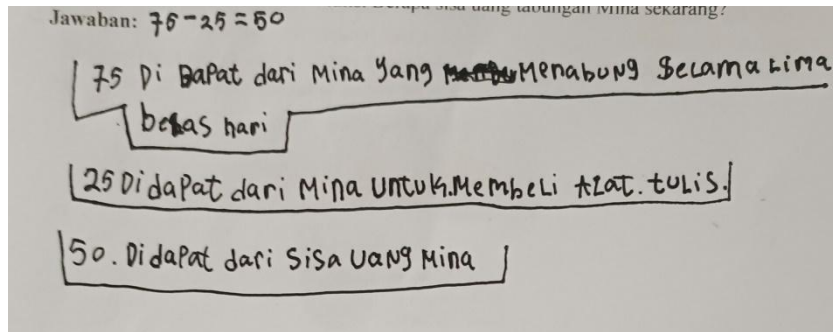 sisa uang tabungan Mina sekarang?
Jawaban: 75-25=50
75 Di Dapat dari Mina yang Menabung Selama Lima
belas hari
25 Didapat dari Mina untuk.Membeli ALat.tuLis.
50. Didapat dari sisa uang Mina